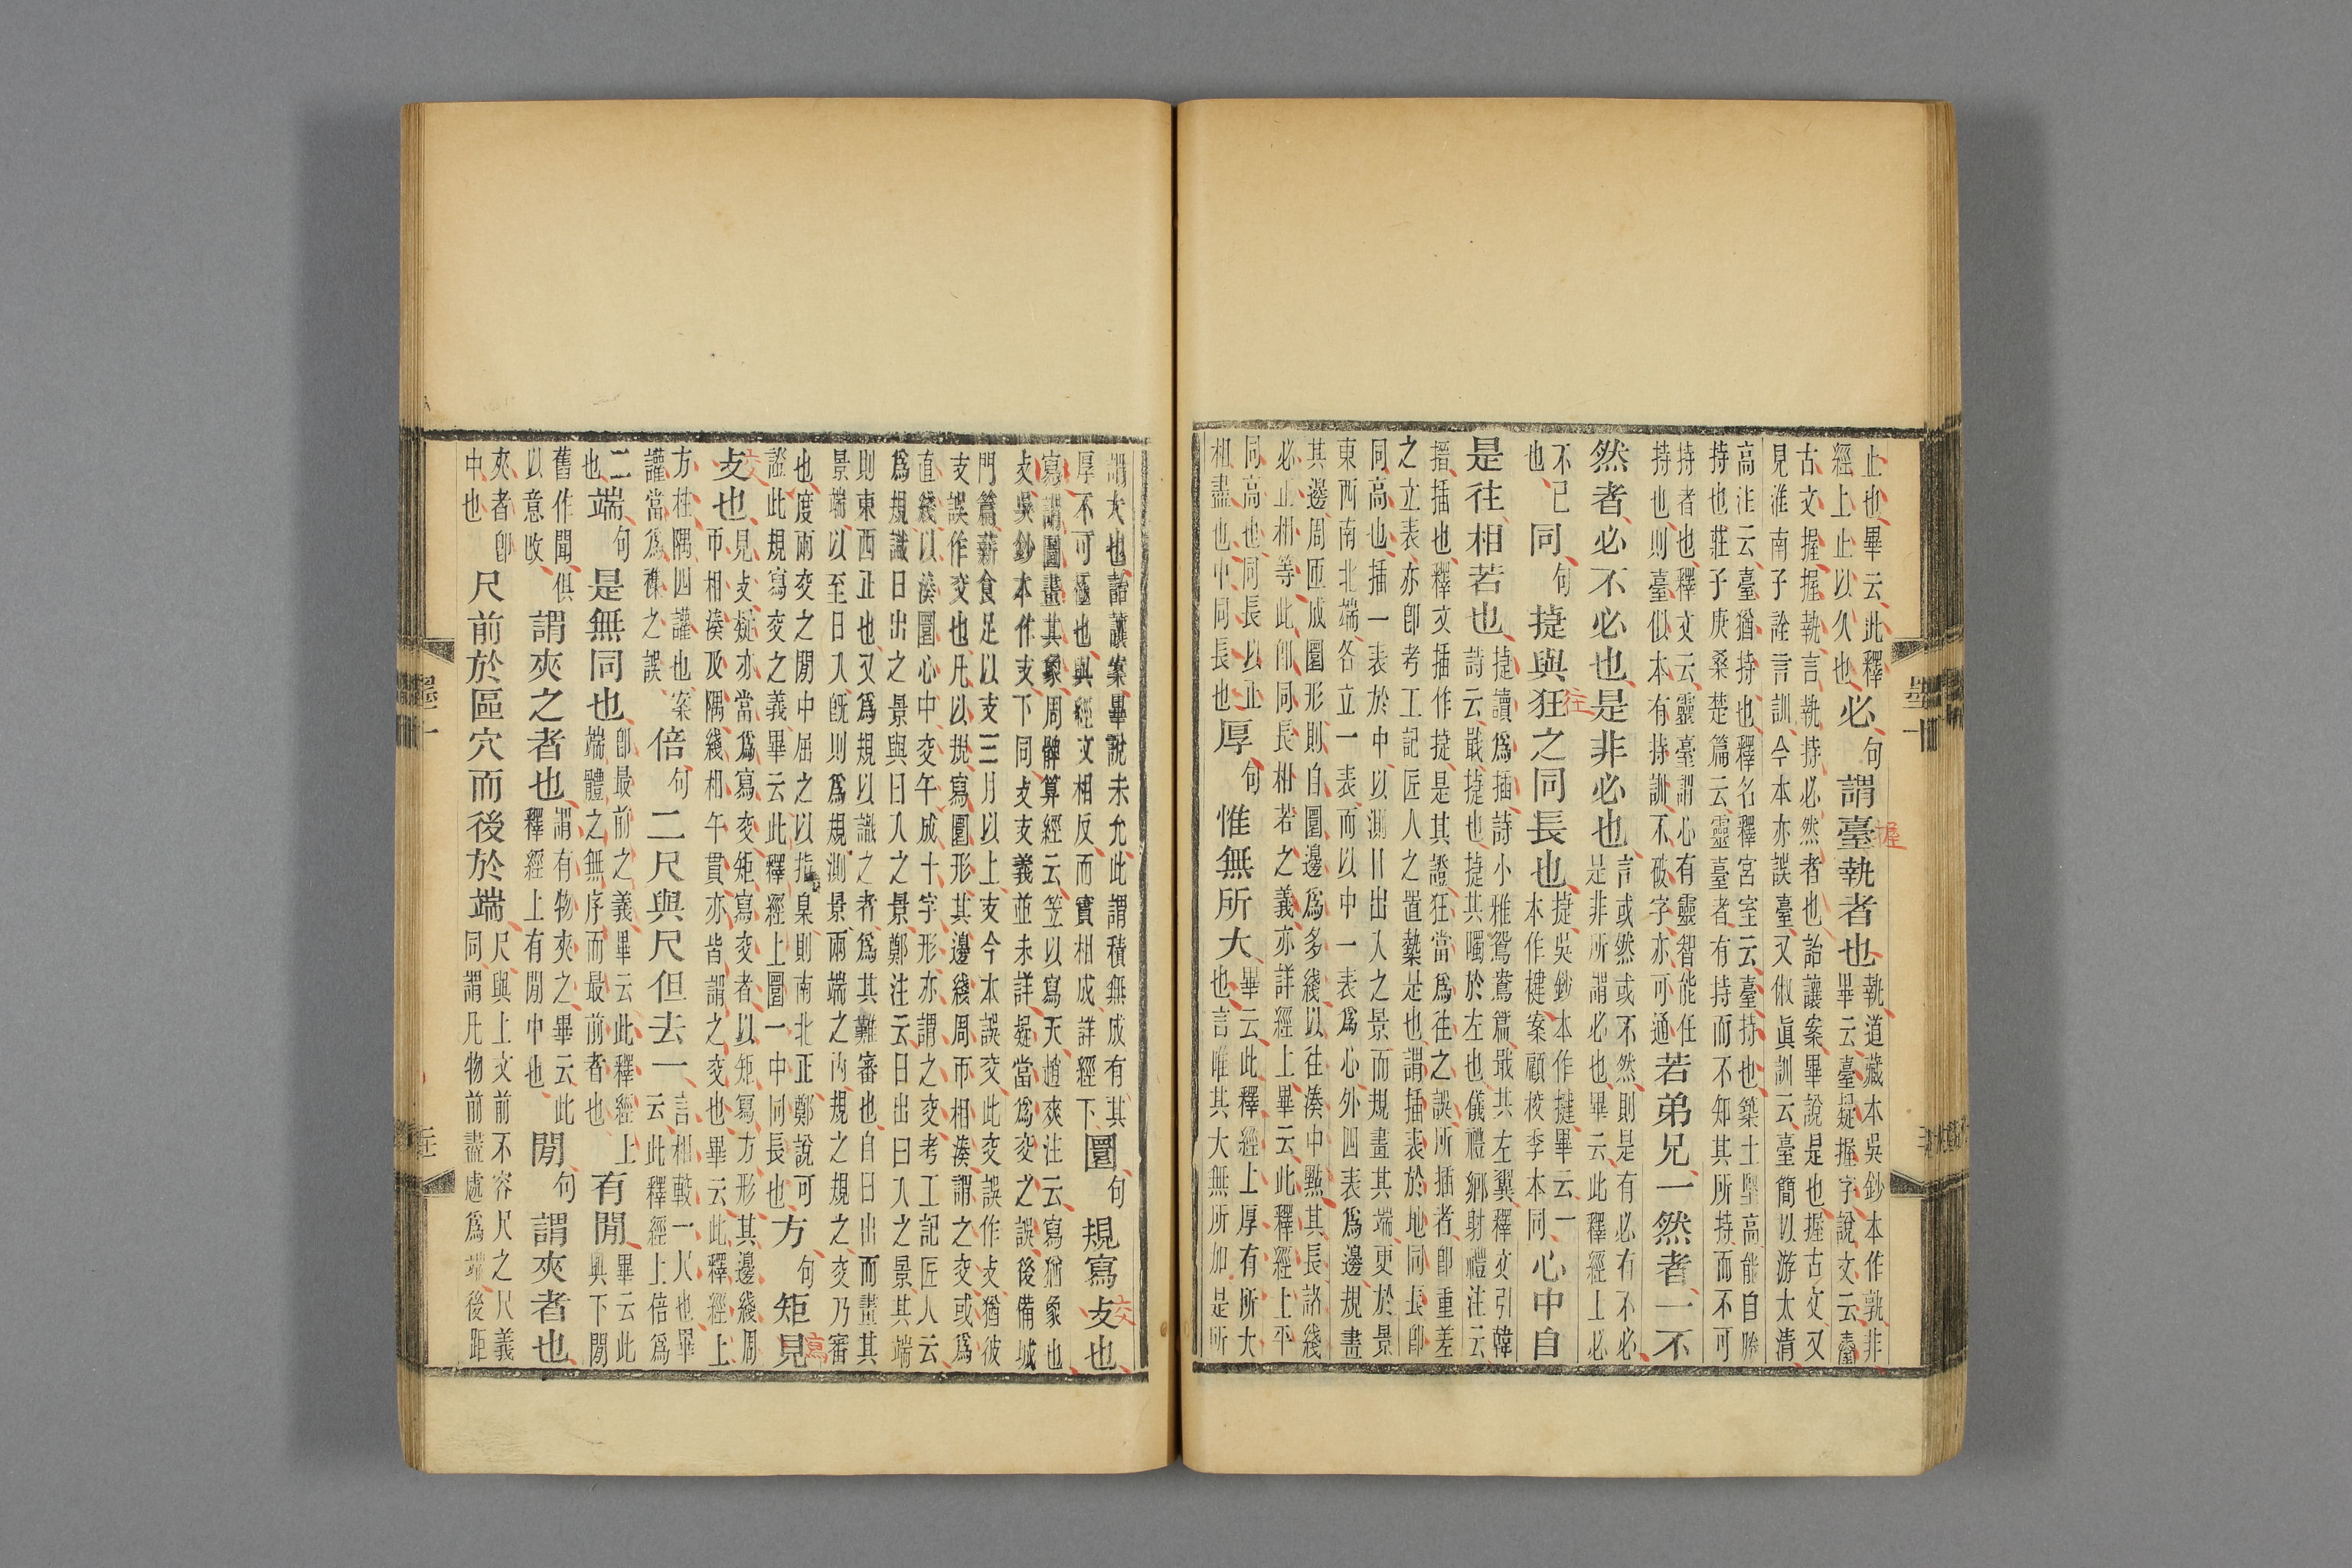 止也畢云此釋
經上止以久也
必句謂臺執者也
握
執道藏本吳鈔本作孰非
畢云臺疑握字說文云臺
古文握握執言執持必然者也詒讓案畢說是也握古文又
見淮南子詮言訓今本亦誤臺又俶眞訓云臺簡以游太清
高注云臺猶持也釋名釋宮室云臺持也築土堅高能自勝
持也莊子庚桑楚篇云靈臺者有持而不知其所持而不可
持者也釋文云靈臺謂心有靈智能任
持也則臺似本有持訓不破字亦可通
若弟兄一然者一不
然者必不必也是非必也
言或然或不然則是有必有不必
是非所謂必也畢云此釋經上必
不已
也
同句捷與狂之同長也
往
捷吳鈔本作揵畢云一
本作楗案顧校季本同
心中自
是往相若也
捷讀爲插詩小雅鴛鴦篇戢其左翼釋文引韓
詩云戢捷也捷其噣於左也儀禮鄉射禮注云
搢插也釋文插作捷是其證狂當爲往之誤所插者卽重差
之立表亦卽考工記匠人之置槷是也謂插表於地同長卽
同高也插一表於中以測日出入之景而規畫其端更於景
東西南北端各立一表而以中一表爲心外四表爲邊規畫
其邊周匝成圜形則自圜邊爲多綫以往湊中點其長詻綫
必正相等此卽同長相若之義亦詳經上畢云此釋經上平
同高也同長以正
相盡也中同長也
厚句惟無所大
畢云此釋經上厚有所大
也言唯其大無所加是所
謂大也詒讓案畢說未允此謂積無成有其
厚不可極也與經文相反而實相成詳經下
圜句規寫攴也
交
寫謂圖畫其象周髀算經云笠以寫天趙爽注云寫猶象也
攴吳鈔本作支下同攴支義並未詳疑當爲交之誤後備城
門篇薪食足以支三月以上支今本誤交此交誤作攴猶彼
支誤作交也凡以規寫圜形其邊綫周帀相湊謂之交或爲
直綫以湊圜心中交午成十字形亦謂之交考工記匠人云
爲規識日出之景與日入之景鄭注云日出日入之景其端
則東西正也又爲規以識之者爲其難審也自日出而畫其
景端以至日入旣則爲規測景兩端之內規之規之交乃審
也度兩交之閒中屈之以指臬則南北正鄭說可
證此規寫交之義畢云此釋經上圜一中同長也
方句矩見
寫
攴也
交
見攴疑亦當爲寫交矩寫交者以矩寫方形其邊綫周
帀相湊及隅綫相午貫亦皆謂之交也畢云此釋經上
方柱隅四讙也案
讙當爲雜之誤
倍句二尺與尺但去一
言相較一尺也畢
云此釋經上倍爲
二
也
端句是無同也
卽最前之義畢云此釋經上
端體之無序而最前者也
有閒
畢云此
與下閒
舊作聞俱
以意改
謂夾之者也
謂有物夾之畢云此
釋經上有閒中也
閒句謂夾者也
夾者卽
中也
尺前於區穴而後於端
尺與上文前不容尺之尺義
同謂凡物前盡處爲端後距